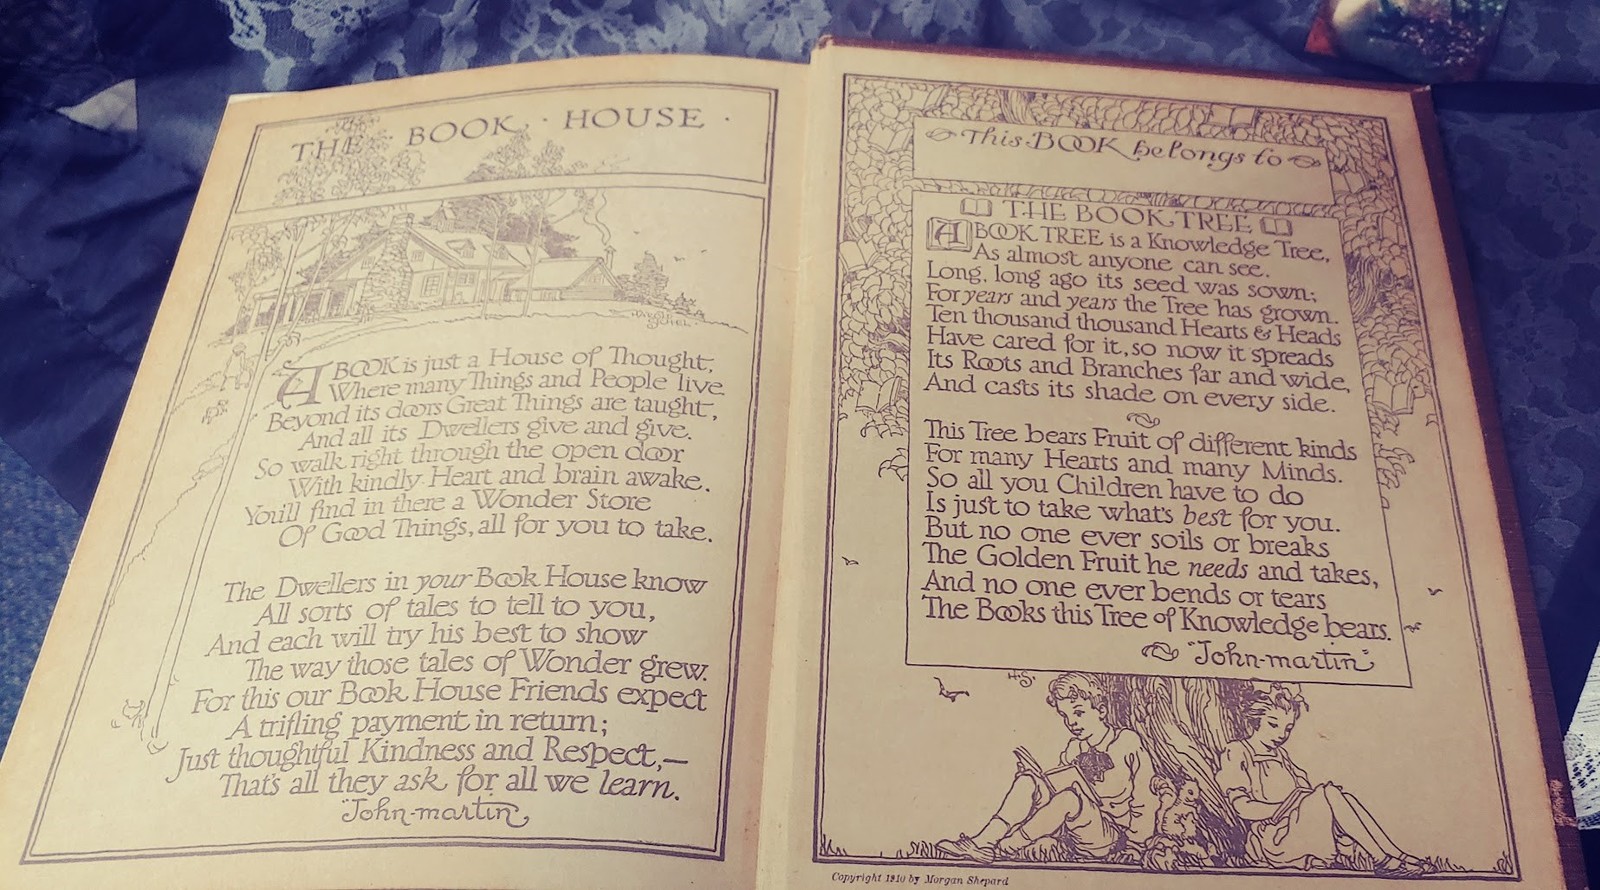 THE · BOOK · HOUSE ·
A BOOK is just a House of Thought,
Where many Things and People live.
Beyond its doors Great Things are taught,
And all its Dwellers give and give.
So walk right through the open door
With kindly Heart and brain awake.
You'll find in there a Wonder Store
Of Good Things, all for you to take.
The Dwellers in your Book House know
All sorts of tales to tell to you,
And each will try his best to show
The way those tales of Wonder grew.
For this our Book House Friends expect
A trifling payment in return;
Just thoughtful Kindness and Respect,—
That's all they ask for all we learn.
"John-martin"
This BOOK belongs to
THE BOOK TREE
A BOOK TREE is a Knowledge Tree,
As almost anyone can see.
Long, long ago its seed was sown;
For years and years the Tree has grown.
Ten thousand thousand Hearts & Heads
Have cared for it, so now it spreads
Its Roots and Branches far and wide,
And casts its shade on every side.
This Tree bears Fruit of different kinds
For many Hearts and many Minds.
So all you Children have to do
Is just to take what's best for you.
But no one ever soils or breaks
The Golden Fruit he needs and takes,
And no one ever bends or tears
The Books this Tree of Knowledge bears.
"John-martin"
Copyright 1910 by Morgan Shepard